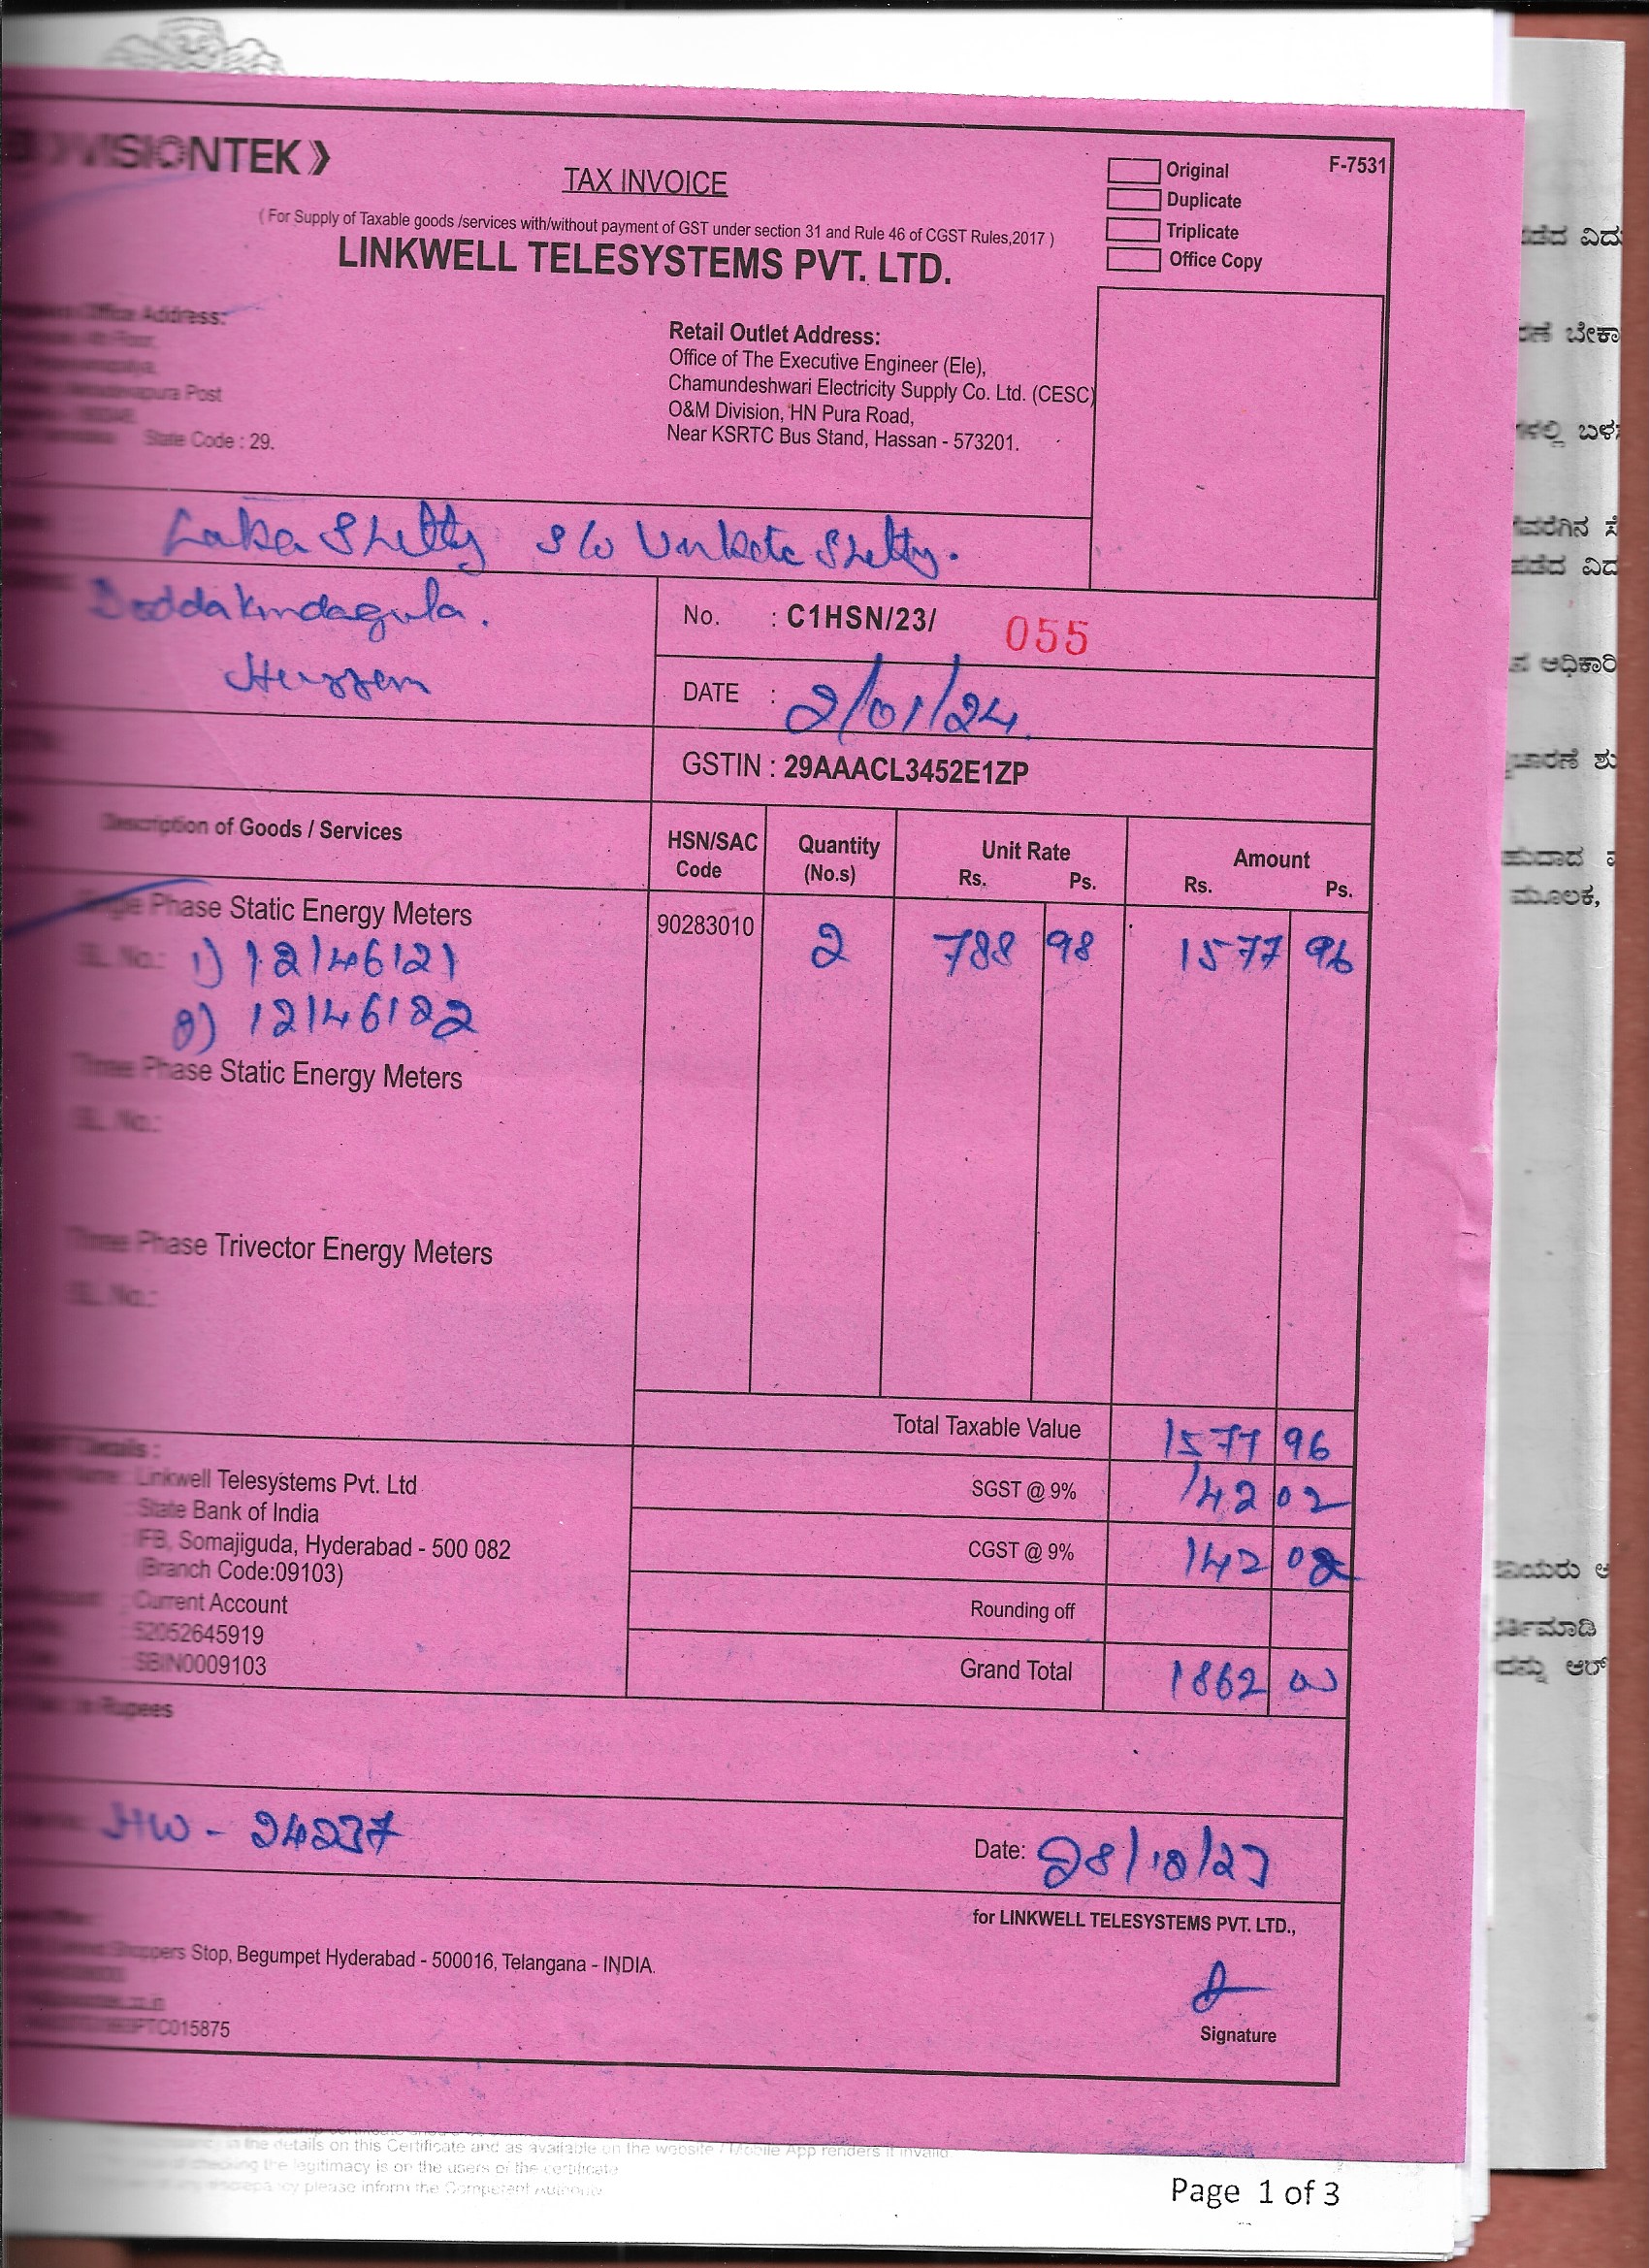 VISIONTEK
TAX INVOICE
Original
F-7531
Duplicate
Triplicate
Office Copy
( For Supply of Taxable goods /services with/without payment of GST under section 31 and Rule 46 of CGST Rules,2017 )
LINKWELL TELESYSTEMS PVT. LTD.
Office Address:
Post
State Code : 29.
Retail Outlet Address:
Office of The Executive Engineer (Ele),
Chamundeshwari Electricity Supply Co. Ltd. (CESC)
O&M Division, HN Pura Road,
Near KSRTC Bus Stand, Hassan - 573201.
Shetty S/o Shetty.
No. : C1HSN/23/ 055
DATE : 2/01/24
GSTIN : 29AAACL3452E1ZP
Description of Goods / Services
HSN/SAC Code
Quantity (No.s)
Unit Rate Rs. Ps.
Amount Rs. Ps.
Single Phase Static Energy Meters 90283010 2 788 98 1577 96
SL. No.: 1) 12146121
2) 12146122
Three Phase Static Energy Meters
SL. No.:
Three Phase Trivector Energy Meters
SL. No.:
Total Taxable Value 1577 96
SGST @ 9% 142 02
CGST @ 9% 142 02
Rounding off
Grand Total 1862 00
Details :
Name : Linkwell Telesystems Pvt. Ltd
: State Bank of India
: IFB, Somajiguda, Hyderabad - 500 082
(Branch Code:09103)
: Current Account
: 52052645919
: SBIN0009103
in Rupees
24237
Date: 28/12/23
for LINKWELL TELESYSTEMS PVT. LTD.,
Shoppers Stop, Begumpet Hyderabad - 500016, Telangana - INDIA.
PTC015875
Signature
the details on this Certificate and as available on the website / Mobile App renders it invalid
checking the legitimacy is on the users of the certificate
please inform the Competent Authority
Page 1 of 3